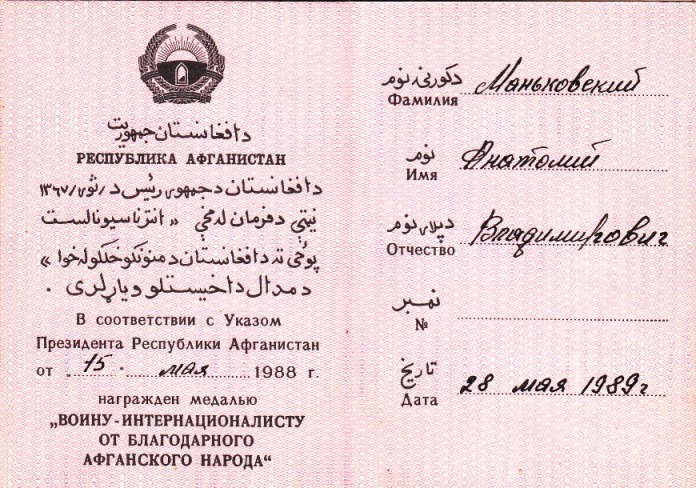 دافغانستان جمهوریت
РЕСПУБЛИКА АФГАНИСТАН
دافغانستان دجمهوری رئیس د /ثور/ ۱۳۶۷
نیټې دفرمان له مخې « انترناسیونالست
پوځي ته دافغانستان دمنونکو خلکو له خوا »
دمدال داخیستلو ویاړ لری .
В соответствии с Указом
Президента Республики Афганистан
от 15 мая 1988 г.
награжден медалью
„ВОИНУ-ИНТЕРНАЦИОНАЛИСТУ
ОТ БЛАГОДАРНОГО
АФГАНСКОГО НАРОДА“
دکورنی نوم Маньковский
Фамилия
نوم Анатолий
Имя
دپلار نوم Владимирович
Отчество
نمبر
№
تاریخ 28 мая 1989 г
Дата